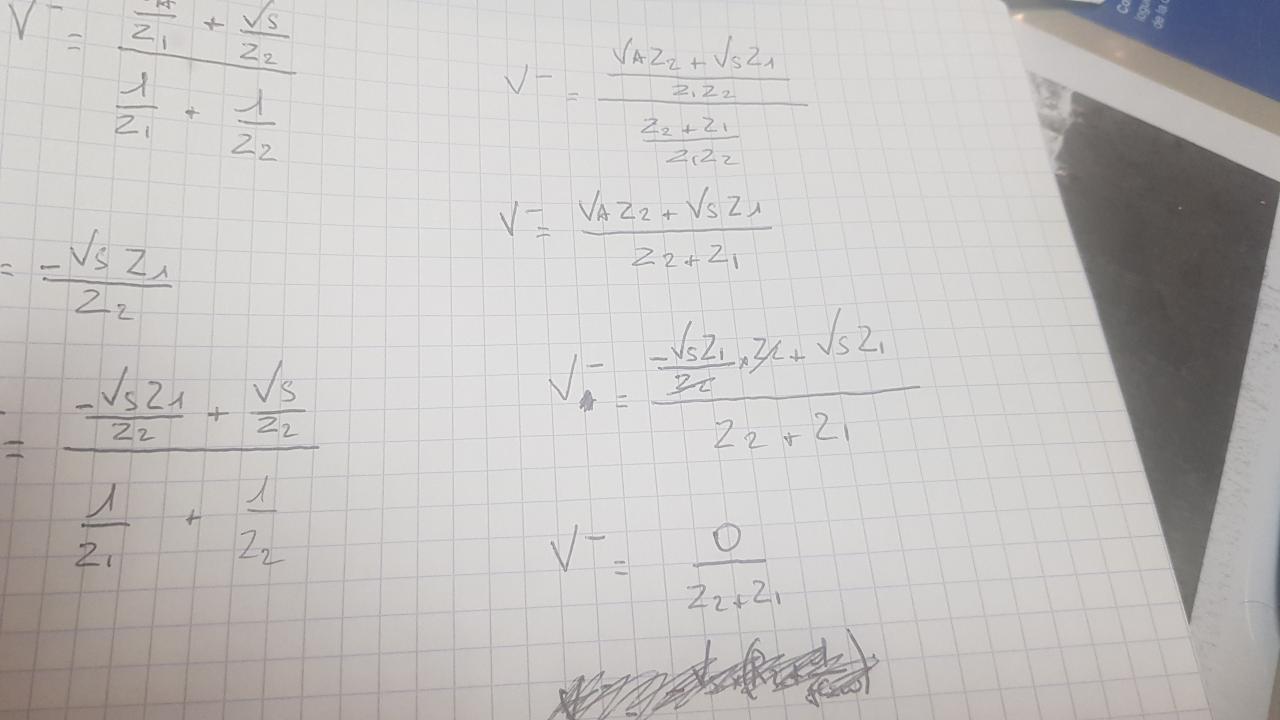 V⁻ = (V_A/Z₁ + V_S/Z₂) / (1/Z₁ + 1/Z₂)
= -V_S Z₁ / Z₂
= (-V_S Z₁/Z₂ + V_S/Z₂) / (1/Z₁ + 1/Z₂)
V⁻ = ((V_A Z₂ + V_S Z₁)/(Z₁Z₂)) / ((Z₂ + Z₁)/(Z₁Z₂))
V⁻ = (V_A Z₂ + V_S Z₁) / (Z₂ + Z₁)
V⁻ = (-V_S Z₁/Z₂ · Z₂ + V_S Z₁) / (Z₂ + Z₁)
V⁻ = 0 / (Z₂ + Z₁)
de la